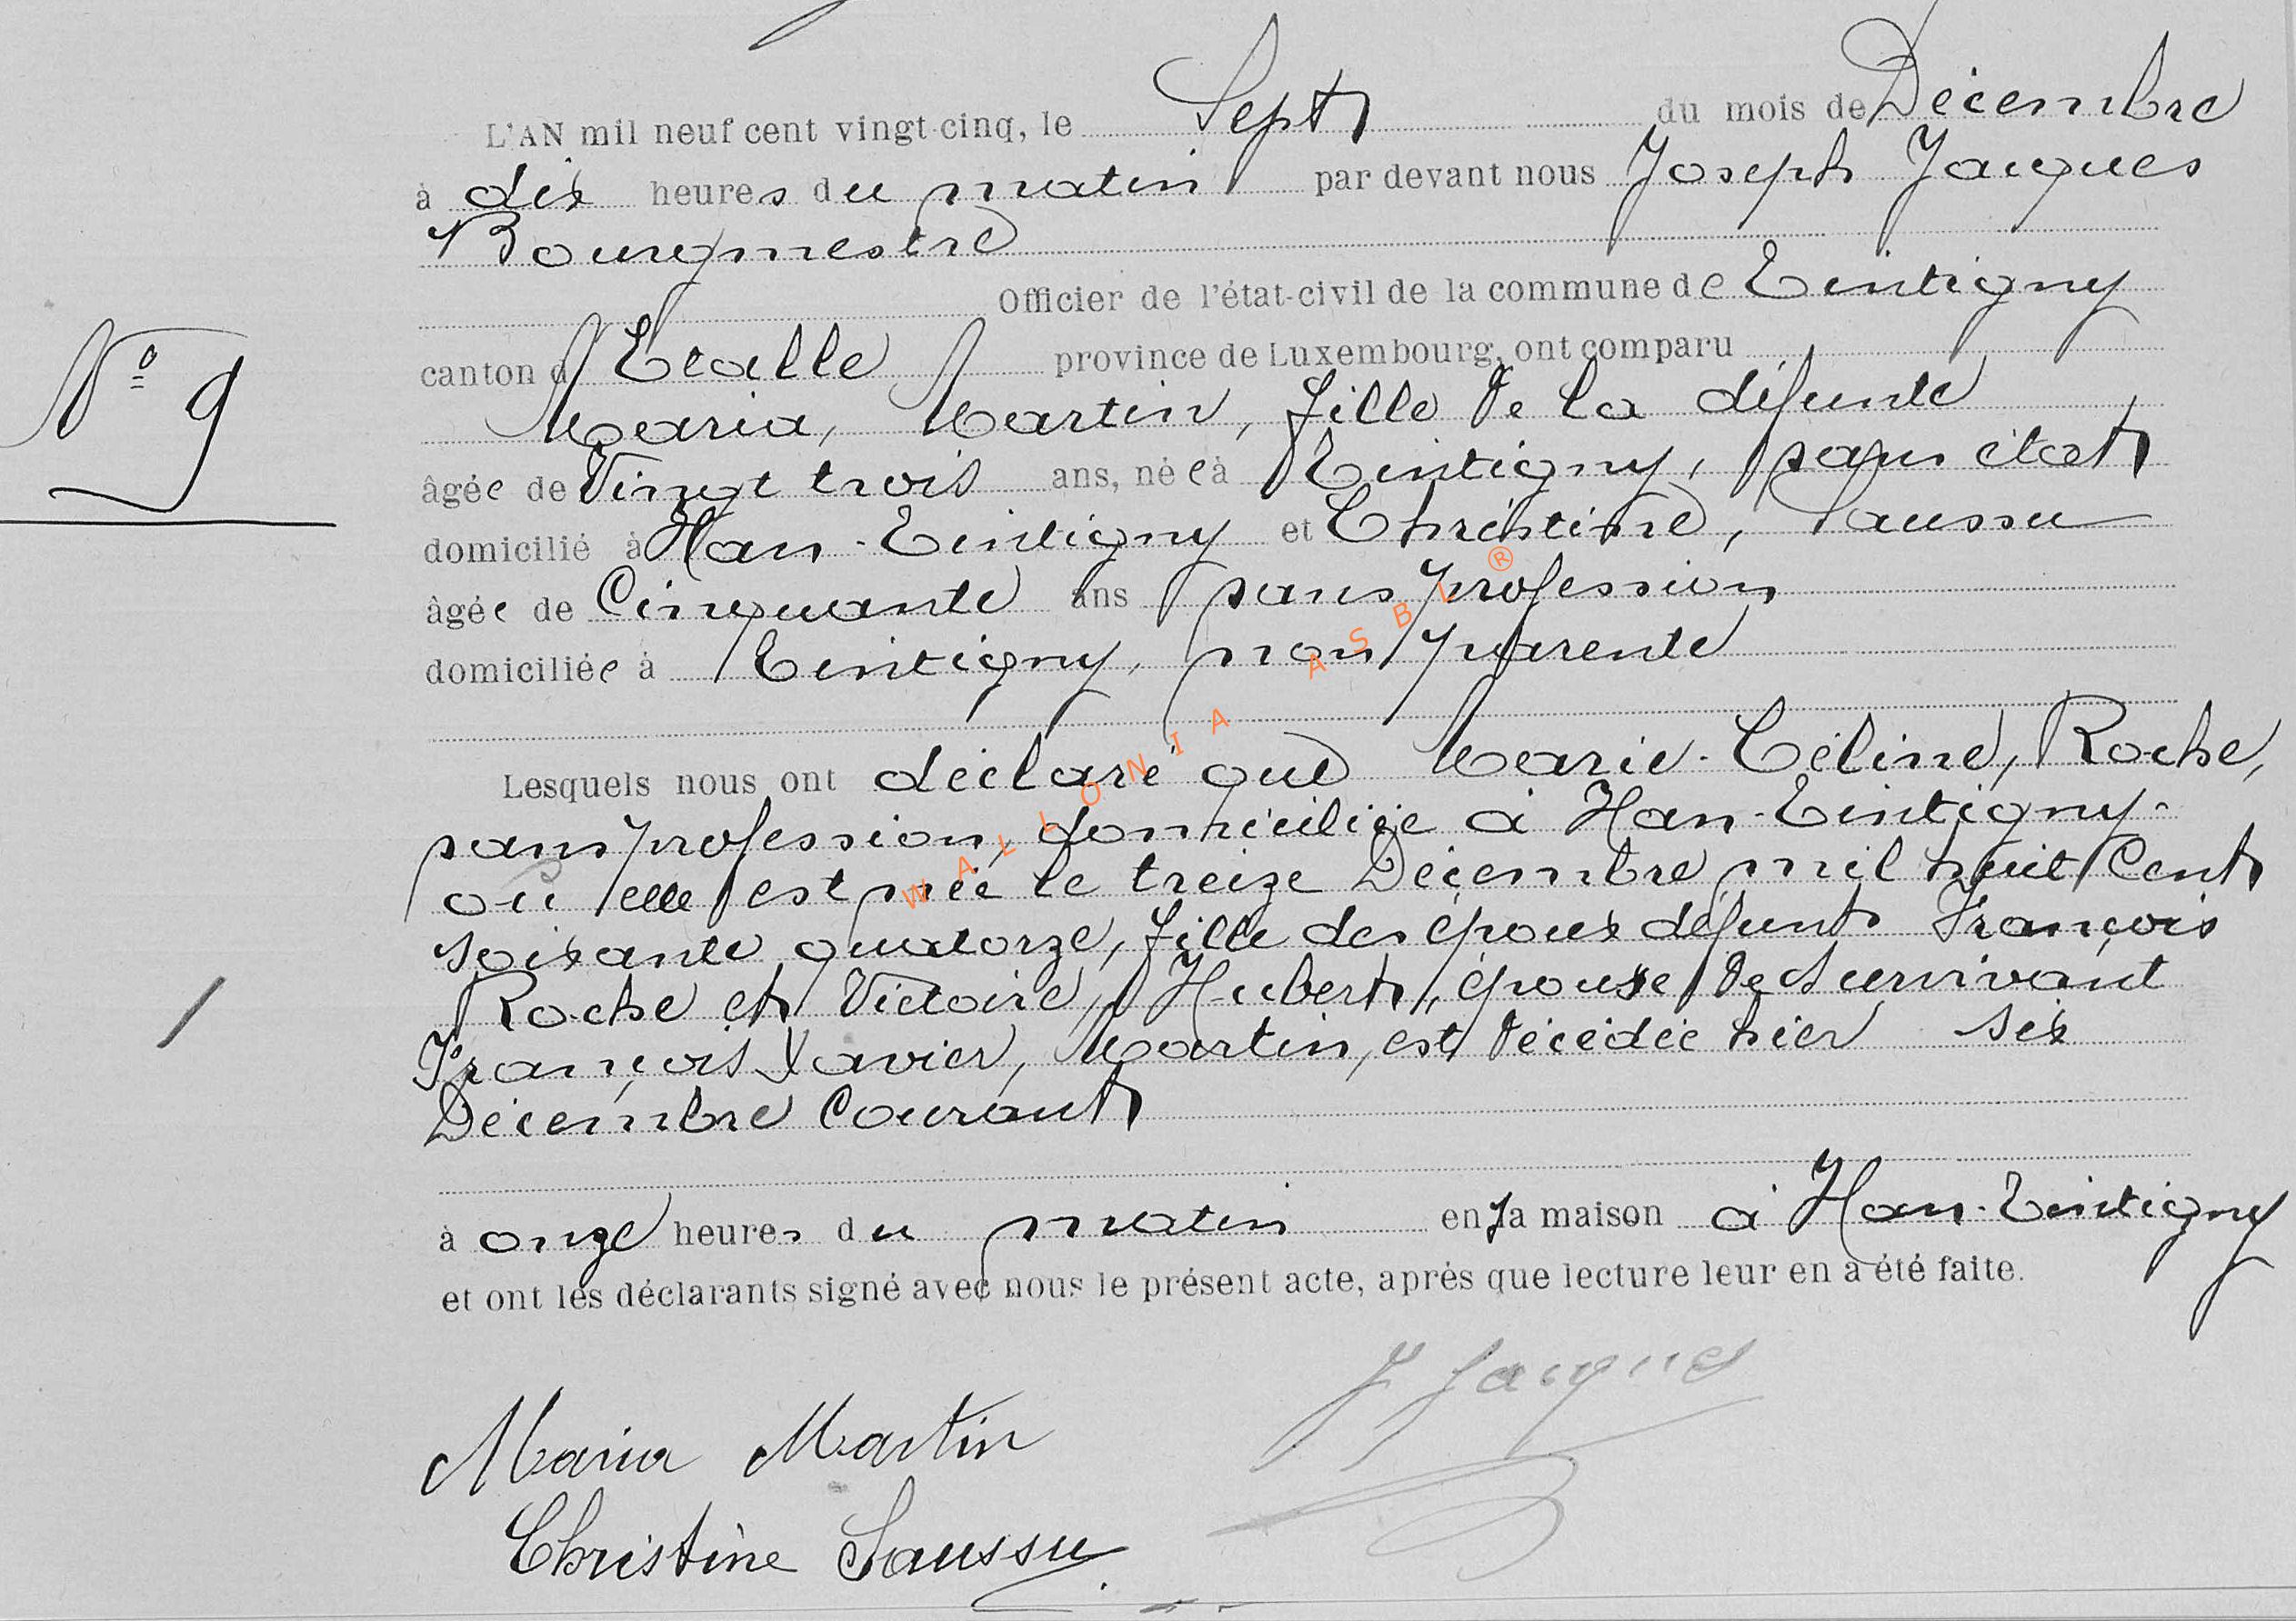 L'AN mil neuf cent vingt-cinq, le Sept du mois de Décembre
à dix heures du matin par devant nous Joseph Jacques
Bourgmestre
Officier de l'état-civil de la commune de Tintigny
canton d'Etalle province de Luxembourg, ont comparu
Maria, Martin, fille de la défunte
âgée de Vingt trois ans, née à Tintigny, sans état
domicilié à Han-Tintigny et Christine, Saussu
âgée de Cinquante ans sans profession
domiciliée à Tintigny, non parente
Lesquels nous ont déclaré que Marie-Céline, Roche,
sans profession, domiciliée à Han-Tintigny-
où elle est née le treize Décembre mil huit Cent
soixante quatorze, fille des époux défunts François
Roche et Victoire, Hubert, épouse de survivant
François Xavier, Martin, est décédée hier six
Décembre Courant
à onze heures du matin en sa maison à Han-Tintigny
et ont les déclarants signé avec nous le présent acte, après que lecture leur en a été faite.
N° 9
J Jacques
Maria Martin
Christine Saussu
WALLONIA ASBL ®